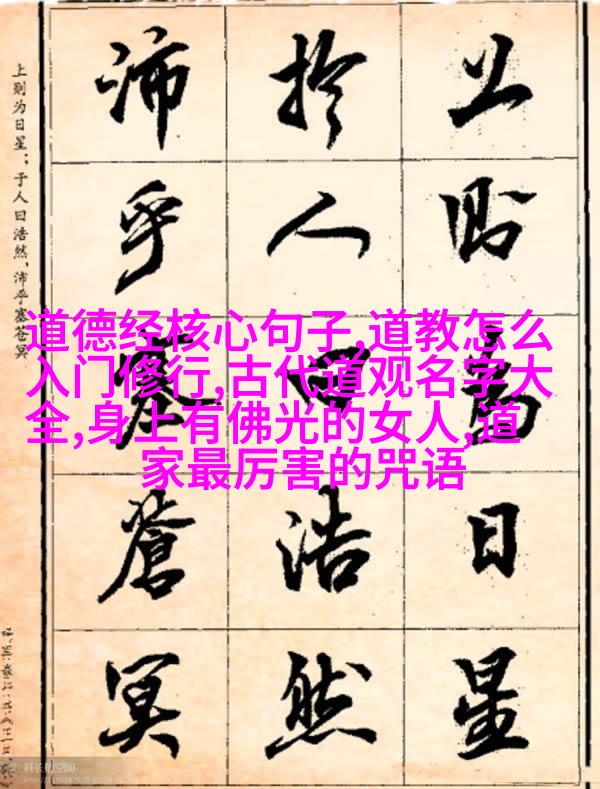 道德经核心句子,道教怎么
入门修行,古代道观名字大
全,身上有佛光的女人,道
家最厉害的咒语
上則為日星
於人曰浩然
沛乎塞蒼冥
上则为日星；于人曰浩然，沛乎塞苍冥
科长的空间